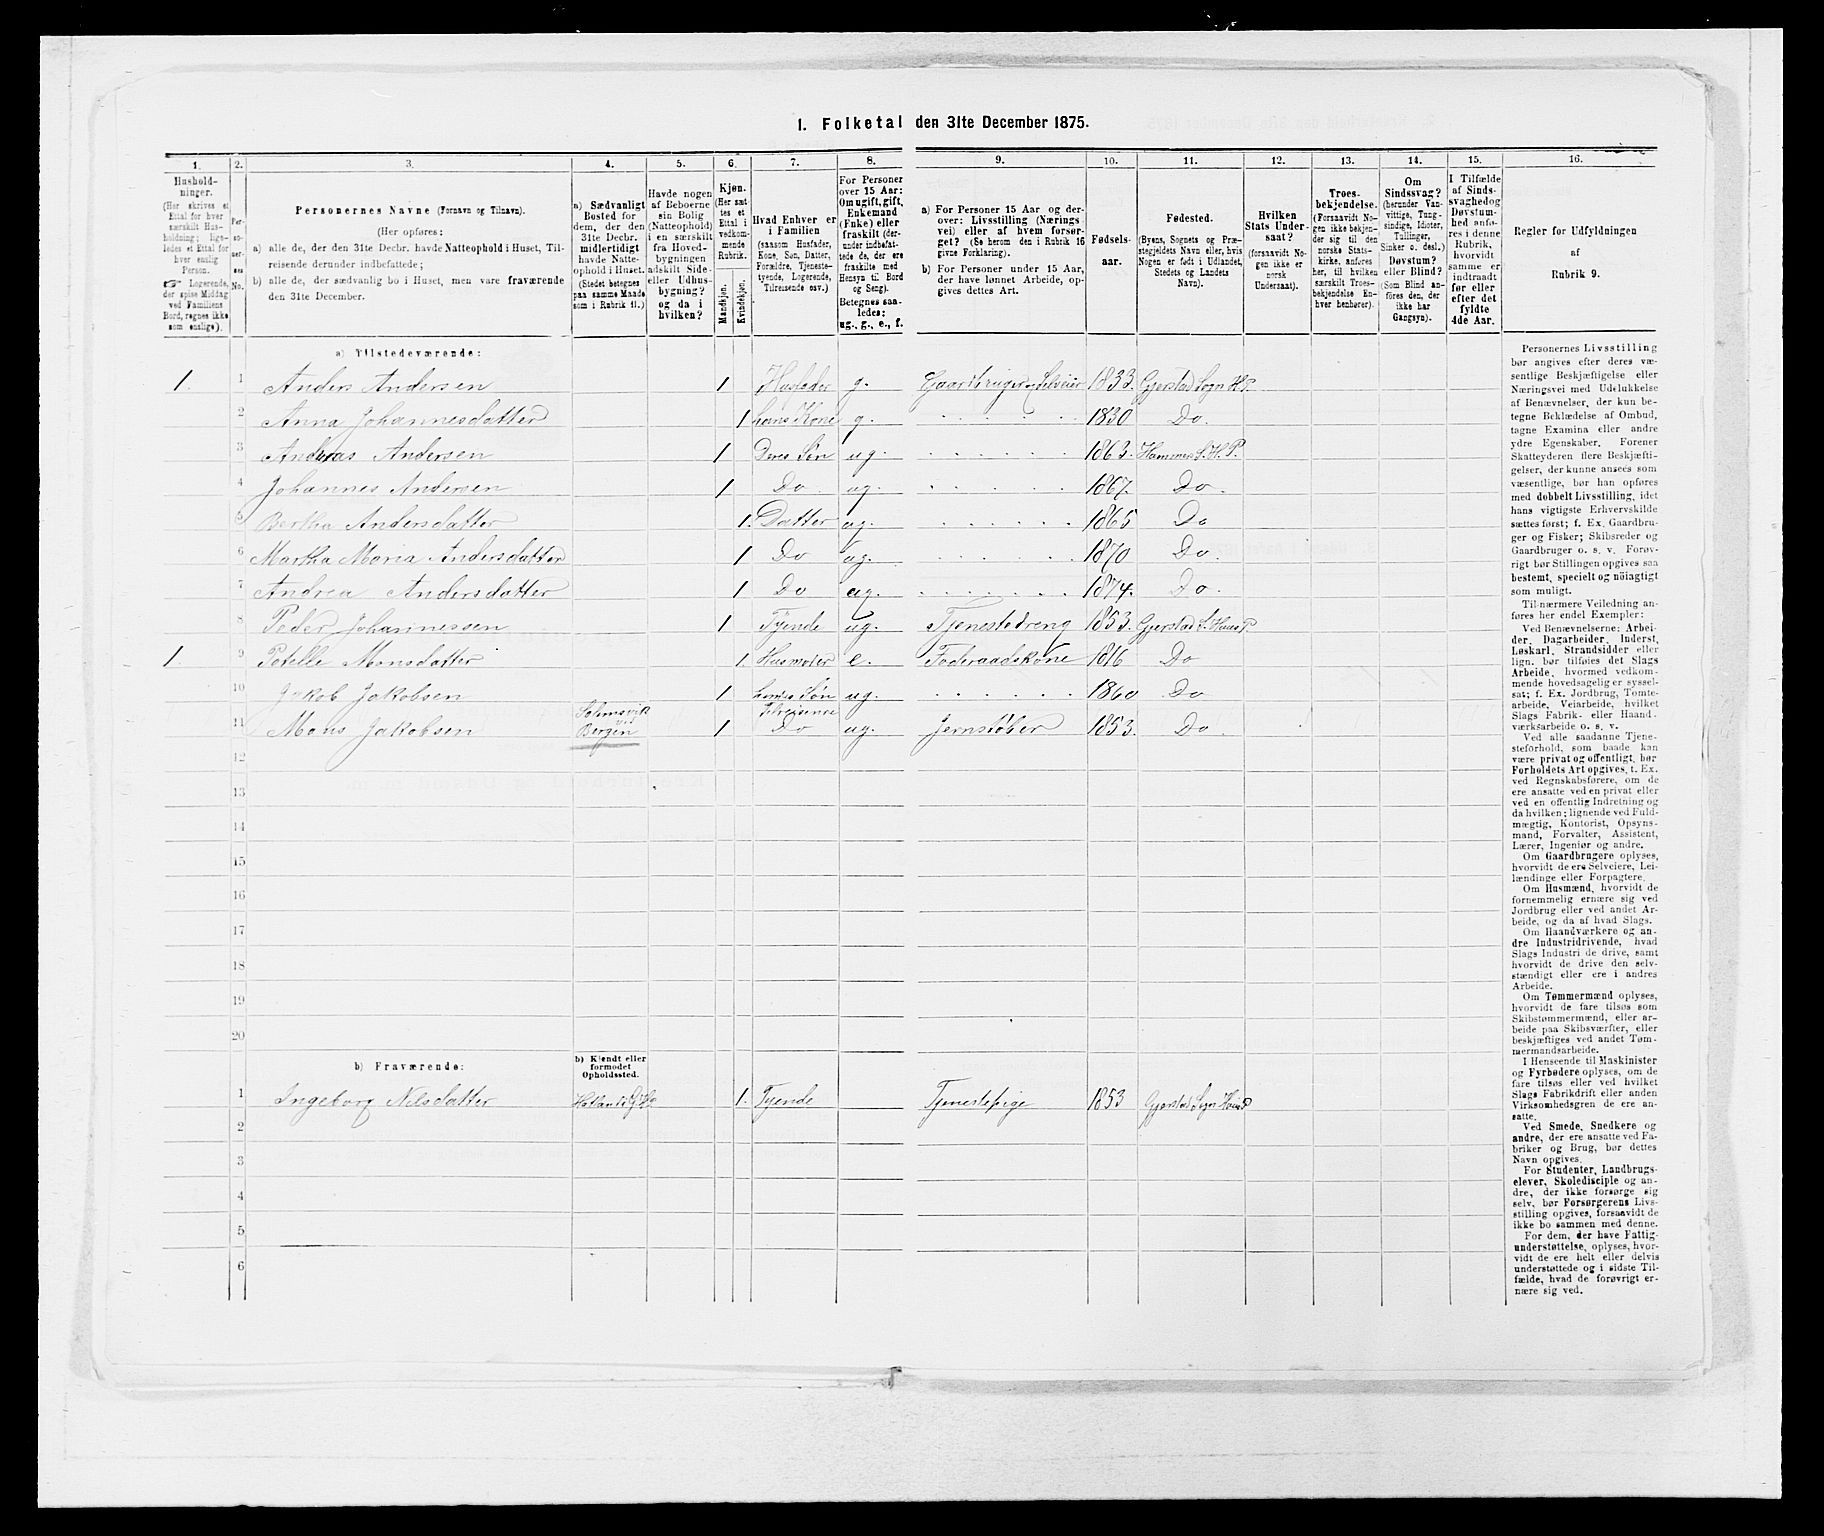 1. Folketal den 31te December 1875.
1. 2. 3. 4. 5. 6. 7. 8. 9. 10. 11. 12. 13. 14. 15. 16.
Hushold-
ninger.
(Her skrives et
Ettal for hver
særskilt Hus-
holdning; lige-
ledes et Ettal for
hver enslig
Person.
☞ Logerende,
der spise Middag
ved Familiens
Bord, regnes ikke
som enslige).
Per-
so-
ner-
nes
No.
Personernes Navne (Fornavn og Tilnavn).
(Her opføres:
a) alle de, der den 31te Decbr. havde Natteophold i Huset, Til-
reisende derunder indbefattede;
b) alle de, der sædvanlig bo i Huset, men vare fraværende
den 31te December.
a) Sædvanligt
Bosted for
dem, der den
31te Decbr.
midlertidigt
havde Natte-
ophold i Huset.
(Stedet betegnes
paa samme Maade
som i Rubrik 11.)
Havde nogen
af Beboerne
sin Bolig
(Natteophold)
i en særskilt
fra Hoved-
bygningen
adskilt Side-
eller Udhus-
bygning?
og da i
hvilken?
Kjøn.
(Her sæt-
tes et
Ettal i
vedkom-
mende
Rubrik.
Mandkjøn.
Kvindekjøn.
Hvad Enhver er
i Familien
(saasom Husfader,
Kone, Søn, Datter,
Forældre, Tjeneste-
tyende, Logerende,
Tilreisende osv.)
For Personer
over 15 Aar:
Om ugift, gift,
Enkemand
(Enke) eller
fraskilt (der-
under indbefat-
tede de, der ere
fraskilte med
Hensyn til Bord
og Seng).
Betegnes saa-
ledes:
ug., g., e., f.
a) For Personer 15 Aar og der-
over: Livsstilling (Nærings-
vei) eller af hvem forsør-
get? (Se herom den i Rubrik 16
givne Forklaring).
b) For Personer under 15 Aar,
der have lønnet Arbeide, op-
gives dettes Art.
Fødsels-
aar.
Fødested.
(Byens, Sognets og Præ-
stegjeldets Navn eller, hvis
Nogen er født i Udlandet,
Stedets og Landets
Navn).
Hvilken
Stats Under-
saat?
(forsaavidt No-
gen ikke er
norsk
Undersaat).
Troes-
bekjendelse.
(Forsaavidt No-
gen ikke bekjen-
der sig til den
norske Stats-
kirke, anføres
her, til hvilken
særskilt Troes-
bekjendelse En-
hver henhører).
Om
Sindssvag?
(herunder Van-
vittige, Tung-
sindige, Idioter,
Tullinger,
Sinker o. desl.)
Døvstum?
eller Blind?
(Som Blind an-
føres den, der
ikke har
Gangsyn).
I Tilfælde
af Sinds-
svaghed og
Døvstum-
hed anfø-
res i denne
Rubrik,
hvorvidt
samme er
indtraadt
før eller
efter det
fyldte
4de Aar.
Regler for Udfyldningen
af
Rubrik 9.
a) Tilstedeværende:
1. 1 Anders Andersen 1 Husfader g. Gaardbruger og Selveier 1833. Gjerstad Sogn H.P.
2 Anna Johannesdatter 1 hans Kone g. 1830 Do.
3 Andreas Andersen 1 Deres Søn ug. 1863. Hammer S. H. P.
4 Johannes Andersen 1 Do. ug. 1867. Do.
5 Bertha Andersdatter 1. Datter ug. 1865 Do
6 Martha Maria Andersdatter 1 Do ug. 1870 Do.
7 Andrea Andersdatter 1 Do ug. 1874. Do.
8 Peder Johannessen 1 Tyende ug. Tjenestedreng 1853. Gjerstad S. Haus P.
1. 9 Monsdatter 1. Husmoder e. Føderaadskone 1816 Do
10 Jakob Jakobsen 1 Søn ug. 1860 Do
11 Mons Jakobsen Solemsvik ved Bergen 1 Tilreisende Do ug. Jernstøber 1853. Do.
12
13
14
15
16
17
18
19
20
b) Fraværende:
b) Kjendt eller
formodet
Opholdssted.
1 Ingeborg Nilsdatter 1. Tyende Tjenestepige 1853 Gjerstad Sogn Haus P
2
3
4
5
6
Personernes Livsstilling
bør angives efter deres væ-
sentlige Beskjæftigelse eller
Næringsvei med Udelukkelse
af Benævnelser, der kun be-
tegne Beklædelse af Ombud,
tagne Examina eller andre
ydre Egenskaber. Forener
Skatteyderen flere Beskjæfti-
gelser, der kunne ansees som
væsentlige, bør han opføres
med dobbelt Livsstilling, idet
hans vigtigste Erhvervskilde
sættes først; f. Ex. Gaardbru-
ger og Fisker; Skibsreder og
Gaardbruger o. s. v. Forøv-
rigt bør Stillingen opgives saa
bestemt, specielt og nöiagtigt
som muligt.
Til nærmere Veiledning an-
føres her endel Exempler:
Ved Benævnelserne: Arbei-
der, Dagarbeider, Inderst,
Løskarl, Strandsidder eller
lign. bør tilføies det Slags
Arbeide, hvormed vedkom-
mende hovedsagelig er syssel-
sat; f. Ex. Jordbrug, Tomte-
arbeide, Veiarbeide, hvilket
Slags Fabrik- eller Haand-
værksarbeide o. s. v.
Ved alle saadanne Tjene-
steforhold, som baade kan
være privat og offentligt, bør
Forholdets Art opgives, t. Ex.
ved Regnskabsførere, om de
ere ansatte ved en privat eller
ved en offentlig Indretning og
da hvilken; lignende ved Fuld-
mægtig, Kontorist, Opsyns-
mand, Forvalter, Assistent,
Lærer, Ingeniør og andre.
Om Gaardbrugere oplyses,
hvorvidt de ere Selveiere, Lei-
lændinge eller Forpagtere.
Om Husmænd, hvorvidt de
fornemmelig ernære sig ved
Jordbrug eller ved andet Ar-
beide, og da af hvad Slags.
Om Haandværkere og an-
dre Industridrivende, hvad
Slags Industri de drive, samt
hvorvidt de drive den selv-
stændigt eller ere i andres
Arbeide.
Om Tømmermænd oplyses,
hvorvidt de fare tilsøs som
Skibstømmermænd, eller ar-
beide paa Skibsværfter, eller
beskjæftiges ved andet Tøm-
mermandsarbeide.
I Henseende til Maskinister
og Fyrbødere oplyses, om de
fare tilsøs eller ved hvilket
Slags Fabrikdrift eller anden
Virksomhedsgren de ere an-
satte.
Ved Smede, Snedkere og
andre, der ere ansatte ved Fa-
briker og Brug, bør dettes
Navn opgives.
For Studenter, Landbrugs-
elever, Skoledisciple og an-
dre, der ikke forsørge sig
selv, bør Forsørgerens Livs-
stilling opgives, forsaavidt de
ikke bo sammen med denne.
For dem, der have Fattig-
understøttelse, oplyses, hvor-
vidt de ere helt eller delvis
understøttede og i sidste Til-
fælde, hvad de forøvrigt er-
nære sig ved.